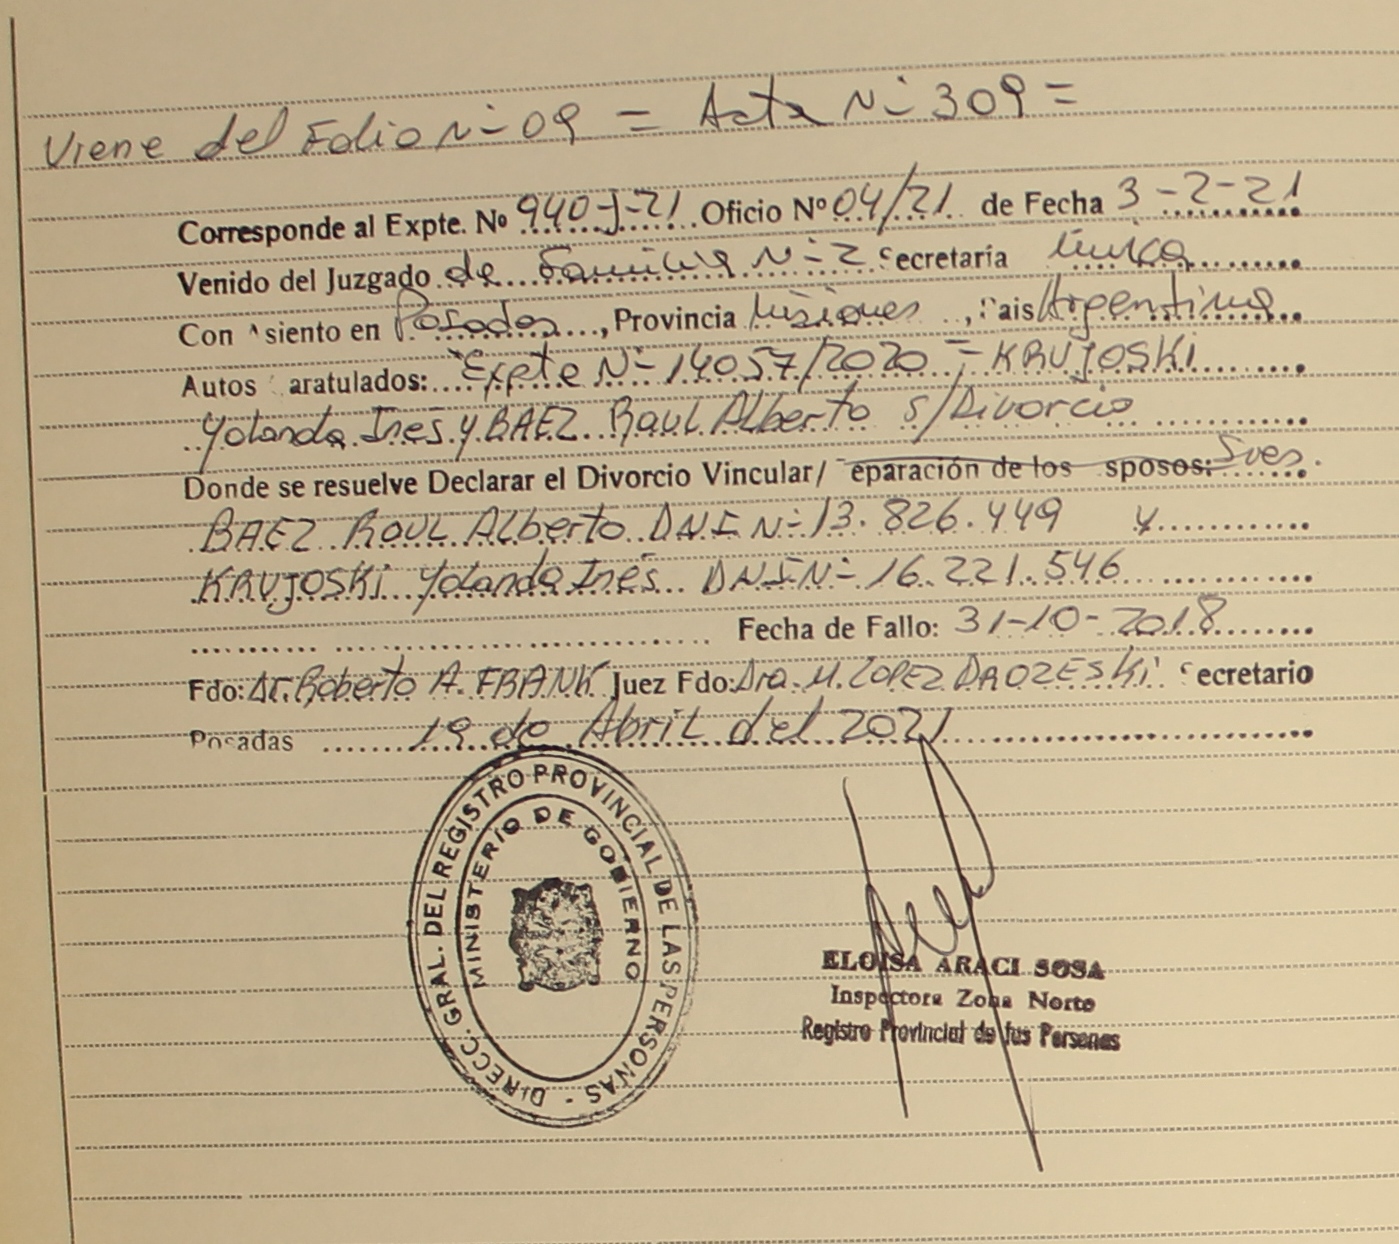 Viene del Folio N- 09 = Acta N- 309 =
Corresponde al Expte. Nº 940-J-21 Oficio Nº 04/21 de Fecha 3-2-21
Venido del Juzgado de Familia N-2 Secretaría Única
Con Asiento en Posadas, Provincia Misiones, Pais Argentina
Autos Caratulados: Expte N- 14057/2020 - KRUJOSKI
Yolanda Inés y BAEZ Raul Alberto s/Divorcio
Donde se resuelve Declarar el Divorcio Vincular/ eparación de los sposos: Sres.
BAEZ RAUL Alberto DNI N- 13.826.449 y
KRUJOSKI Yolanda Inés DNI N- 16.221.546
Fecha de Fallo: 31-10-2018
Fdo: Dr. Roberto A. FRANK Juez Fdo: Dra. M. LOPEZ Secretario
Posadas 19 de Abril del 2021
DIRECC. GRAL. DEL REGISTRO PROVINCIAL DE LAS PERSONAS -
MINISTERIO DE GOBIERNO
ELOISA ARACI SOSA
Inspectora Zona Norte
Registro Provincial de las Personas